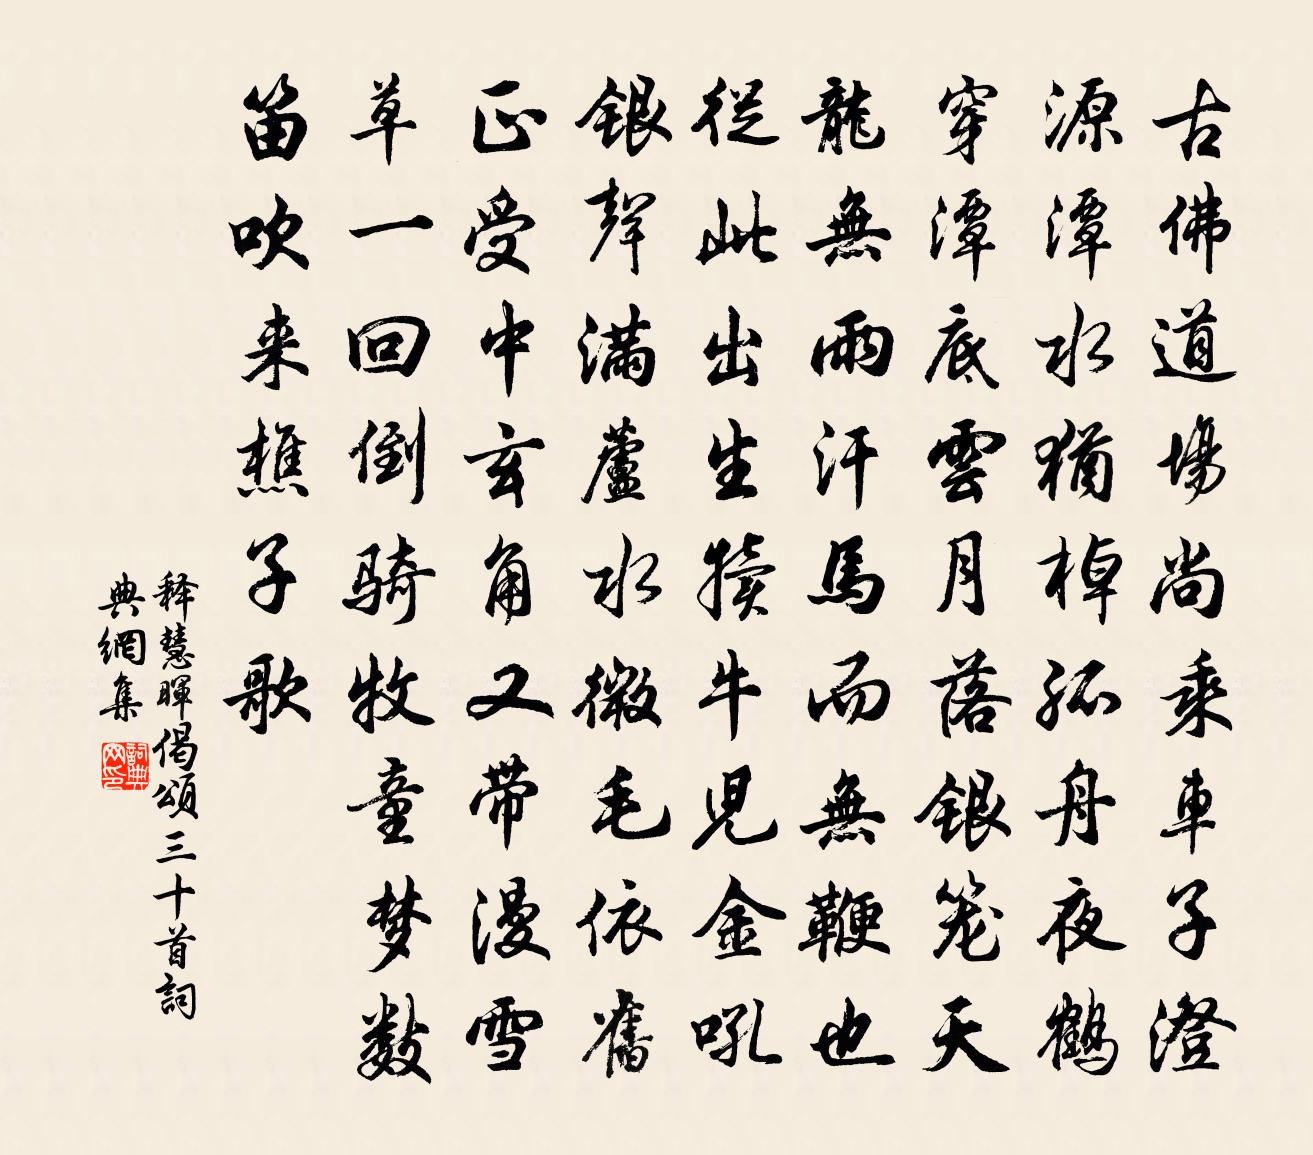 古佛道場尚乘車子澄
源潭水猶棹孤舟夜鶴
穿潭底雲月落銀笼天
龍無雨汗馬而無鞭也
從此出生犢牛兒金吼
銀聲滿蘆水微毛依舊
正受中玄角又带漫雪
草一回倒骑牧童梦数
笛吹来樵子歌
释慧暉偈頌三十首詞
典網集
詞典网印